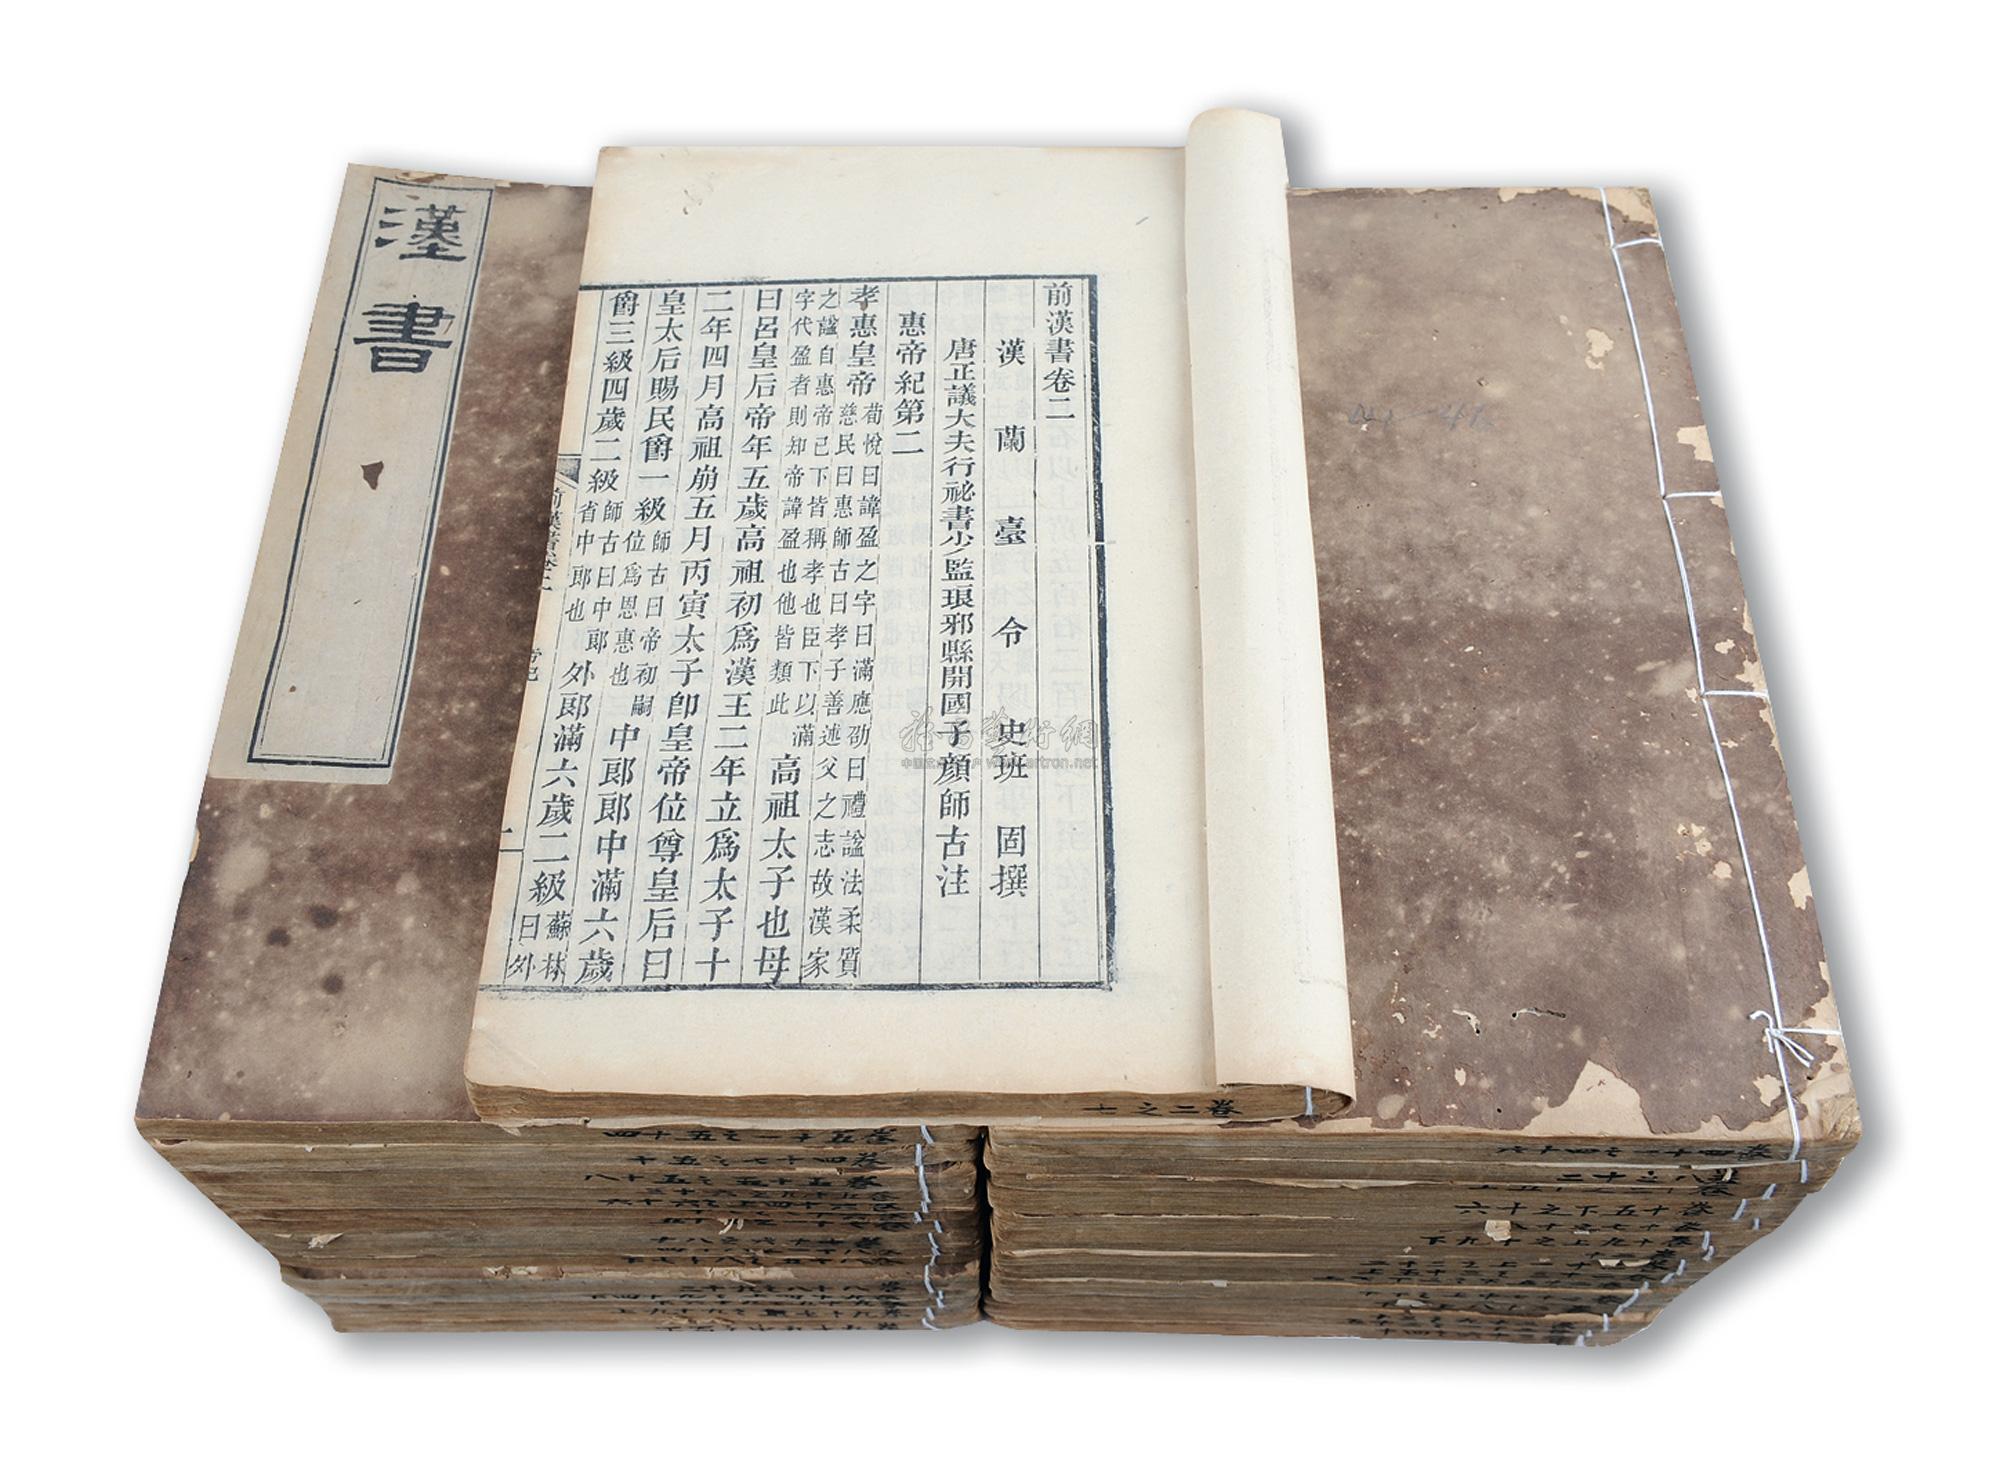 漢書
前漢書卷二
漢蘭臺令史班固撰
唐正議大夫行祕書少監琅邪縣開國子顏師古注
惠帝紀第二
孝惠皇帝荀悅曰諱盈之字曰滿應劭曰禮諡法柔質
慈民曰惠師古曰孝子善述父之志故漢家
之諡自惠帝已下皆稱孝也臣下以滿
字代盈者則知帝諱盈也他皆類此高祖太子也母
曰呂皇后帝年五歲高祖初爲漢王二年立爲太子十
二年四月高祖崩五月丙寅太子卽皇帝位尊皇后曰
皇太后賜民爵一級師古曰帝初嗣
位爲恩惠也中郎郎中滿六歲
爵三級四歲二級師古曰中郎
省中郎也外郎滿六歲二級蘇林
曰外
前漢書卷二
帝紀
一
卷二之七
卷五十一之五十四
卷四十七之五十
卷四十一之四十六
卷十五下之十六
卷十七之十八
卷十九上之十九下
雅昌藝術網
www.artron.net